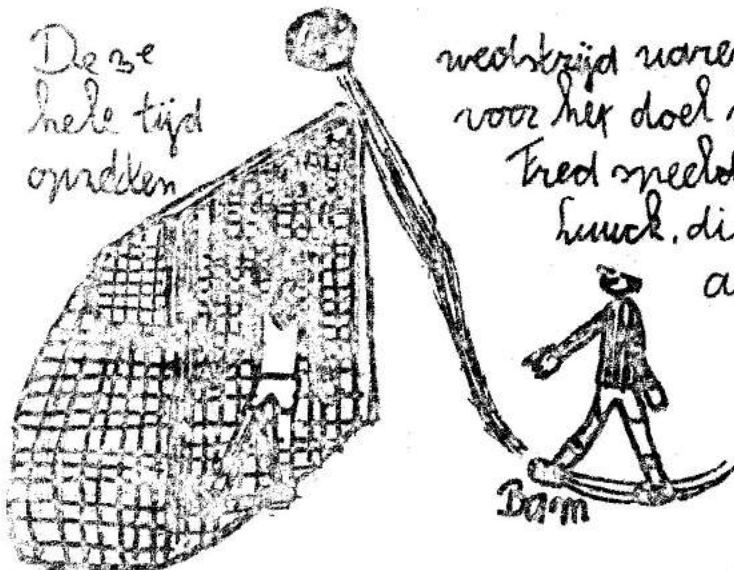 De 3e
hele tijd
wedstrijd waren
voor het doel
Fred speeld
Luuck. di
a
Bam